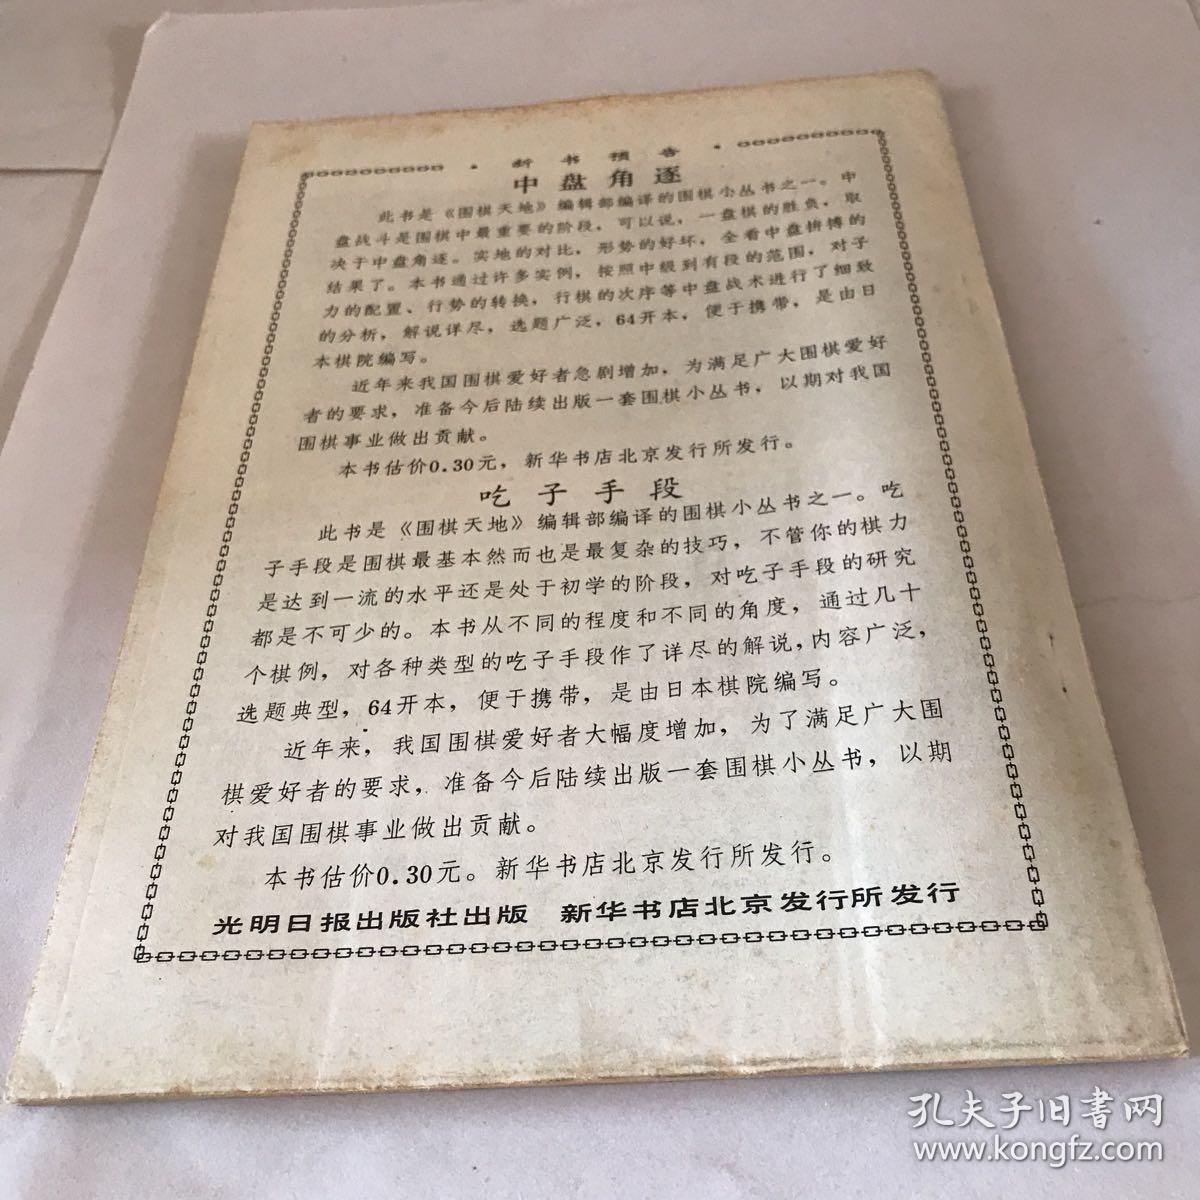 · 新书预告 ·
中盘角逐
此书是《围棋天地》编辑部编译的围棋小丛书之一。中
盘战斗是围棋中最重要的阶段，可以说，一盘棋的胜负，取
决于中盘角逐。实地的对比，形势的好坏，全看中盘拚搏的
结果了。本书通过许多实例，按照中级到有段的范围，对子
力的配置、行势的转换，行棋的次序等中盘战术进行了细致
的分析，解说详尽，选题广泛，64开本，便于携带，是由日
本棋院编写。
近年来我国围棋爱好者急剧增加，为满足广大围棋爱好
者的要求，准备今后陆续出版一套围棋小丛书，以期对我国
围棋事业做出贡献。
本书估价0.30元，新华书店北京发行所发行。
吃子手段
此书是《围棋天地》编辑部编译的围棋小丛书之一。吃
子手段是围棋最基本然而也是最复杂的技巧，不管你的棋力
是达到一流的水平还是处于初学的阶段，对吃子手段的研究
都是不可少的。本书从不同的程度和不同的角度，通过几十
个棋例，对各种类型的吃子手段作了详尽的解说，内容广泛，
选题典型，64开本，便于携带，是由日本棋院编写。
近年来，我国围棋爱好者大幅度增加，为了满足广大围
棋爱好者的要求，准备今后陆续出版一套围棋小丛书，以期
对我国围棋事业做出贡献。
本书估价0.30元。新华书店北京发行所发行。
光明日报出版社出版 新华书店北京发行所发行
孔夫子旧書网
www.kongfz.com